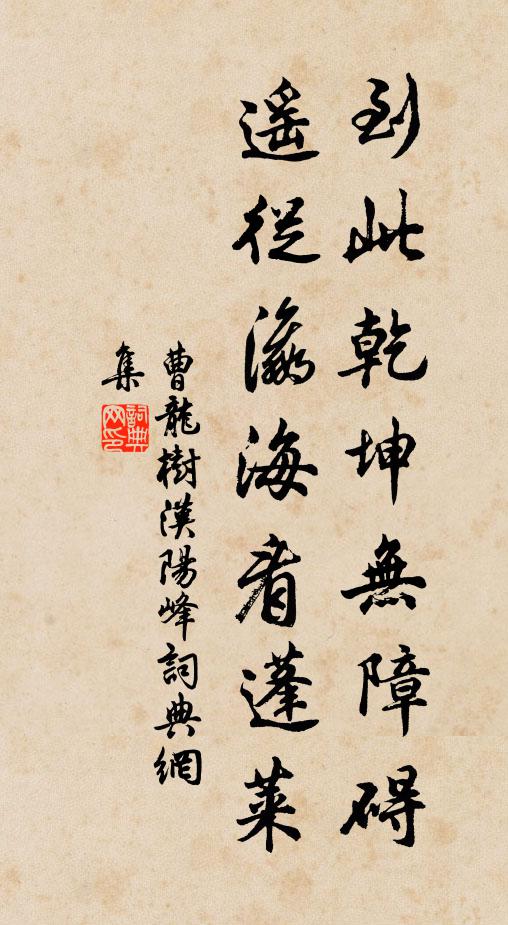 到此乾坤無障碍
遥從瀛海看蓬萊
曹龍樹漢陽峰詞典網
集
詞典
网印